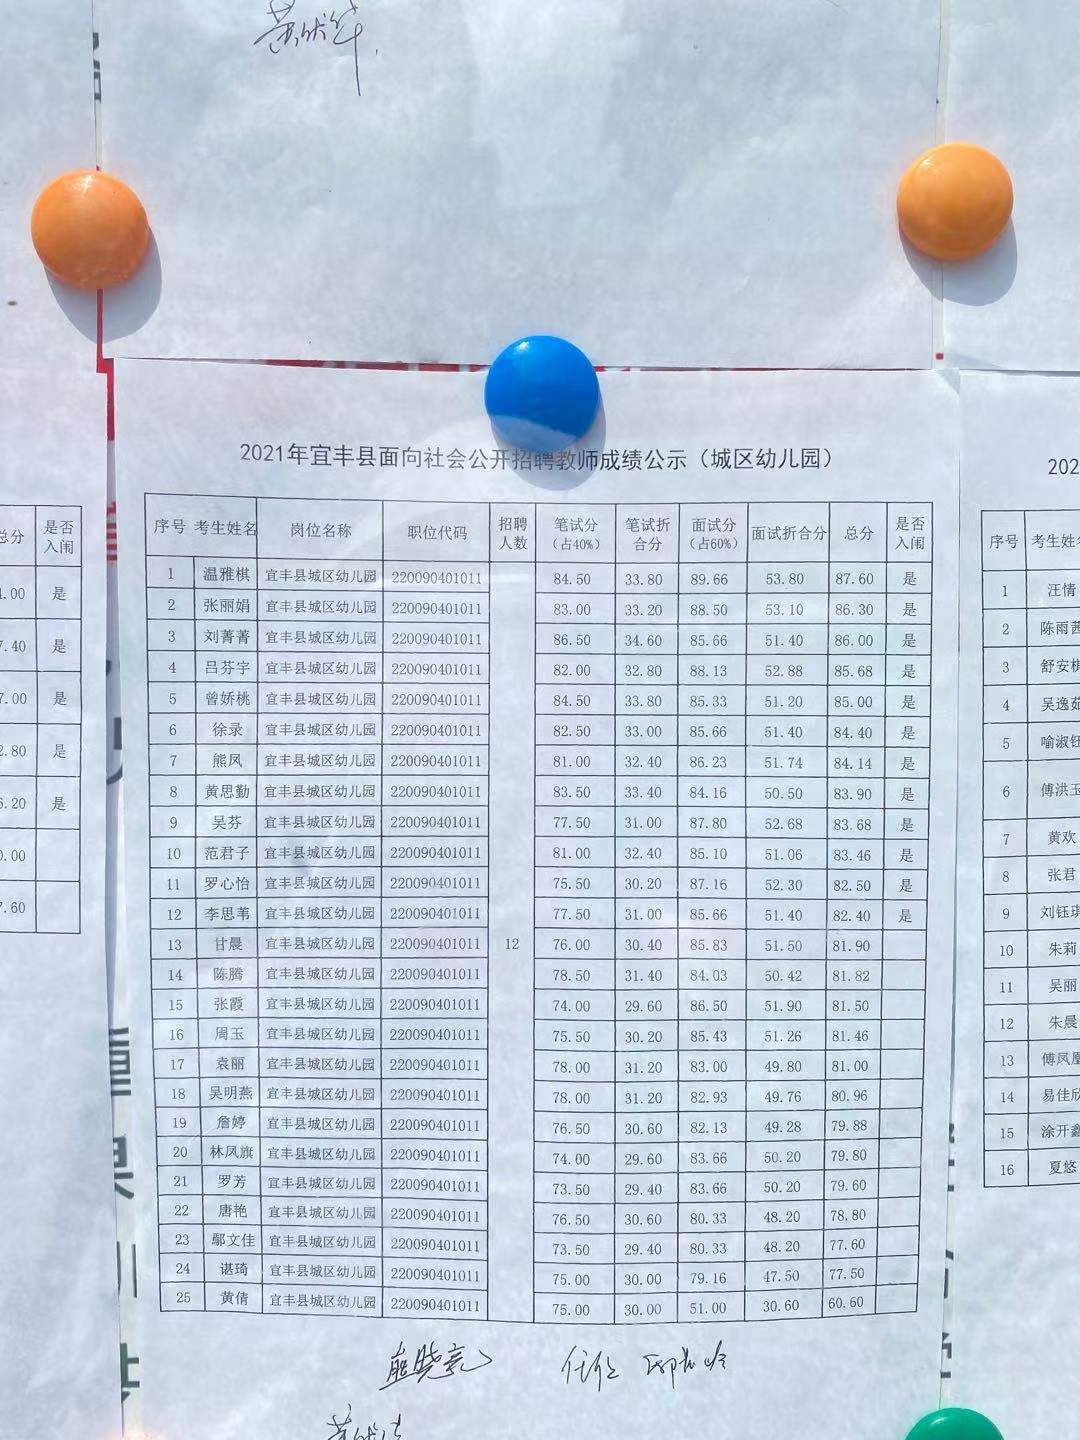 2021年宜丰县面向社会公开招聘教师成绩公示（城区幼儿园）
序号 考生姓名 岗位名称 职位代码 招聘人数 笔试分（占40%） 笔试折合分 面试分（占60%） 面试折合分 总分 是否入闱
1 温雅棋 宜丰县城区幼儿园 220090401011 84.50 33.80 89.66 53.80 87.60 是
2 张丽娟 宜丰县城区幼儿园 220090401011 83.00 33.20 88.50 53.10 86.30 是
3 刘菁菁 宜丰县城区幼儿园 220090401011 86.50 34.60 85.66 51.40 86.00 是
4 吕芬宇 宜丰县城区幼儿园 220090401011 82.00 32.80 88.13 52.88 85.68 是
5 曾娇桃 宜丰县城区幼儿园 220090401011 84.50 33.80 85.33 51.20 85.00 是
6 徐录 宜丰县城区幼儿园 220090401011 82.50 33.00 85.66 51.40 84.40 是
7 熊凤 宜丰县城区幼儿园 220090401011 81.00 32.40 86.23 51.74 84.14 是
8 黄思勤 宜丰县城区幼儿园 220090401011 83.50 33.40 84.16 50.50 83.90 是
9 吴芬 宜丰县城区幼儿园 220090401011 77.50 31.00 87.80 52.68 83.68 是
10 范君子 宜丰县城区幼儿园 220090401011 81.00 32.40 85.10 51.06 83.46 是
11 罗心怡 宜丰县城区幼儿园 220090401011 75.50 30.20 87.16 52.30 82.50 是
12 李思苇 宜丰县城区幼儿园 220090401011 77.50 31.00 85.66 51.40 82.40 是
13 甘晨 宜丰县城区幼儿园 220090401011 12 76.00 30.40 85.83 51.50 81.90
14 陈腾 宜丰县城区幼儿园 220090401011 78.50 31.40 84.03 50.42 81.82
15 张霞 宜丰县城区幼儿园 220090401011 74.00 29.60 86.50 51.90 81.50
16 周玉 宜丰县城区幼儿园 220090401011 75.50 30.20 85.43 51.26 81.46
17 袁丽 宜丰县城区幼儿园 220090401011 78.00 31.20 83.00 49.80 81.00
18 吴明燕 宜丰县城区幼儿园 220090401011 78.00 31.20 82.93 49.76 80.96
19 詹婷 宜丰县城区幼儿园 220090401011 76.50 30.60 82.13 49.28 79.88
20 林凤旗 宜丰县城区幼儿园 220090401011 74.00 29.60 83.66 50.20 79.80
21 罗芳 宜丰县城区幼儿园 220090401011 73.50 29.40 83.66 50.20 79.60
22 唐艳 宜丰县城区幼儿园 220090401011 76.50 30.60 80.33 48.20 78.80
23 鄢文佳 宜丰县城区幼儿园 220090401011 73.50 29.40 80.33 48.20 77.60
24 谌琦 宜丰县城区幼儿园 220090401011 75.00 30.00 79.16 47.50 77.50
25 黄倩 宜丰县城区幼儿园 220090401011 75.00 30.00 51.00 30.60 60.60
总分 是否入闱
.00 是
7.40 是
7.00 是
2.80 是
6.20 是
0.00
7.60
202
序号 考生姓名
1 汪情
2 陈雨茜
3 舒安棋
4 吴逸茹
5 喻淑钰
6 傅洪玉
7 黄欢
8 张君
9 刘钰琪
10 朱莉
11 吴丽
12 朱晨
13 傅凤凰
14 易佳欣
15 涂开鑫
16 夏悠